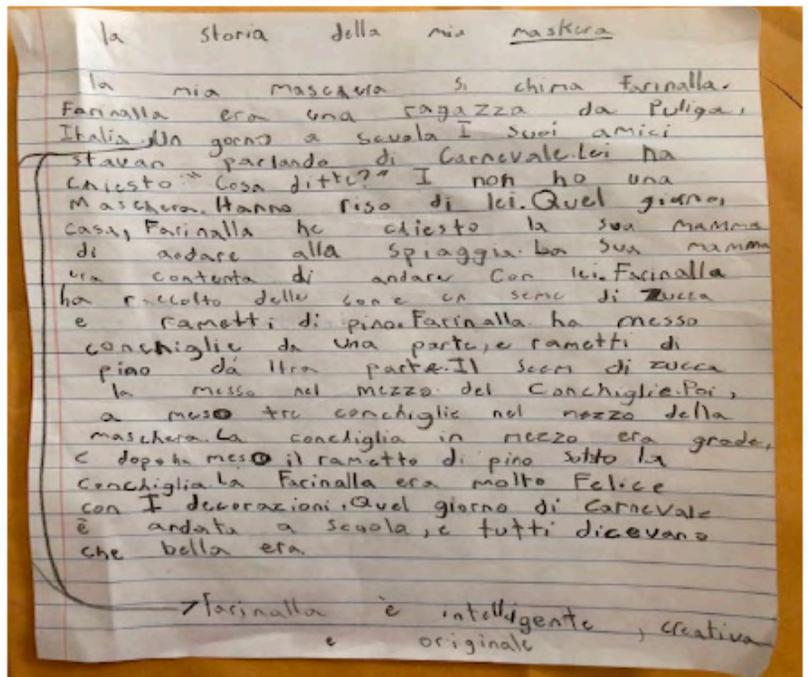 la storia della mia maskera
la mia maschera si chima Farinalla.
Farinalla era una ragazza da Puliga,
Italia. Un gorno a scuola I suoi amici
stavan parlando di Carnevale. Lei ha
chiesto "Cosa ditte?" I non ho una
Maschera. Hanno riso di lei. Quel giorno,
casa, Farinalla ha chiesto la sua mamma
di andare alla spiaggia. La sua mamma
era contenta di andare con lei. Farinalla
ha raccolto delle con e un seme di zucca
e rametti di pino. Farinalla ha messo
conchiglie da una parte, e rametti di
pino da ltra parte. Il seem di zucca
la messo nel mezzo del Conchiglie. Poi,
a meso tre conchiglie nel mezzo della
maschera. La conchiglia in mezzo era grade,
e dopo ha meso il rametto di pino sotto la
conchiglia. La Farinalla era molto Felice
con I decorazioni. Quel giorno di Carnevale
è andata a scuola, e tutti dicevano
che bella era
Farinalla è intelligente, creativa
e originale